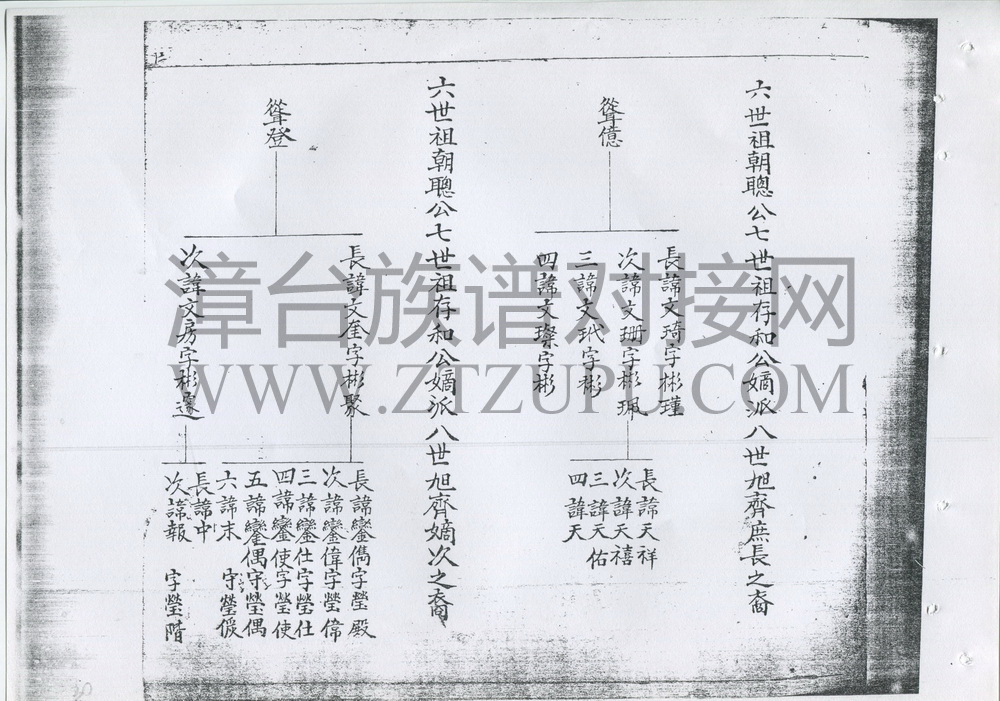 六世祖朝聰公七世祖存和公嫡派八世旭齊庶長之裔
聳億
長諱文琦字彬瑾
次諱文珊字彬珮
三諱文玳字彬
四諱文璨字彬
長諱天祥
次諱天禧
三諱天佑
四諱天
六世祖朝聰公七世祖存和公嫡派八世旭齊嫡次之裔
聳登
長諱文奎字彬聚
次諱文房字彬
長諱鑾儁字瑩殿
次諱鑾偉字瑩偉
三諱鑾仕字瑩仕
四諱鑾使字瑩使
五諱鑾偶字瑩偶
六諱末 字瑩
長諱中
次諱報 字瑩階
漳台族谱对接网
WWW.ZTZUPU.COM